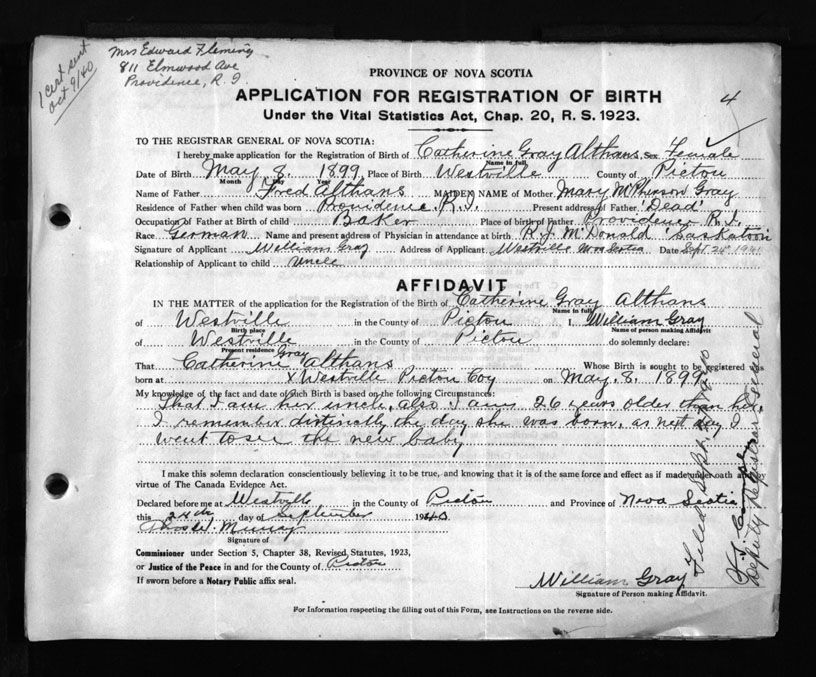 1 cert sent
Oct 9/40
Mrs Edward Fleming
811 Elmwood Ave
Providence, R.I.
4
PROVINCE OF NOVA SCOTIA
APPLICATION FOR REGISTRATION OF BIRTH
Under the Vital Statistics Act, Chap. 20, R. S. 1923.
TO THE REGISTRAR GENERAL OF NOVA SCOTIA:
I hereby make application for the Registration of Birth of Catherine Gray Althans, Sex Female
Name in full
Date of Birth May 8. 1899, Place of Birth Westville County of Pictou
Month Day Year
Name of Father Fred Althans MAIDEN NAME of Mother Mary McPherson Gray
Residence of Father when child was born Providence R.I. Present address of Father "Dead"
Occupation of Father at Birth of child Baker Place of birth of Father Providence R.I.
Race German Name and present address of Physician in attendance at birth R.J. McDonald Saskatoon
Signature of Applicant William Gray Address of Applicant Westville Nova Scotia Date Sept 24 1940
Relationship of Applicant to child Uncle
AFFIDAVIT
IN THE MATTER of the application for the Registration of the Birth of Catherine Gray Althans
Name in full
of Westville in the County of Pictou I, William Gray
Birth place Name of person making Affidavit
of Westville in the County of Pictou do solemnly declare:
Present residence
That Catherine Gray Althans Whose Birth is sought to be registered was
born at X Westville Pictou Coy on May. 8. 1899
My knowledge of the fact and date of such Birth is based on the following Circumstances:
That I am her uncle, also I am 26 years older than her,
I remember distinctly the day she was born, as next day I
went to see the new baby
I make this solemn declaration conscientiously believing it to be true, and knowing that it is of the same force and effect as if made under oath and by
virtue of The Canada Evidence Act.
Declared before me at Westville in the County of Pictou and Province of Nova Scotia
this 24th day of September 1940
Murray
Signature of
Commissioner under Section 5, Chapter 38, Revised Statutes, 1923,
or Justice of the Peace in and for the County of Pictou
If sworn before a Notary Public affix seal.
William Gray
Signature of Person making Affidavit.
For Information respecting the filling out of this Form, see Instructions on the reverse side.
Deputy Registrar General